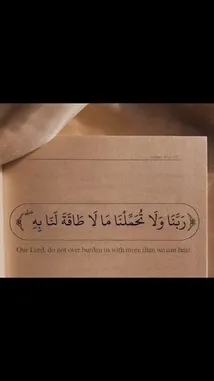 رَبَّنَا وَلَا تُحَمِّلْنَا مَا لَا طَاقَةَ لَنَا بِهِ
Our Lord, do not over burden us with more than we can bear